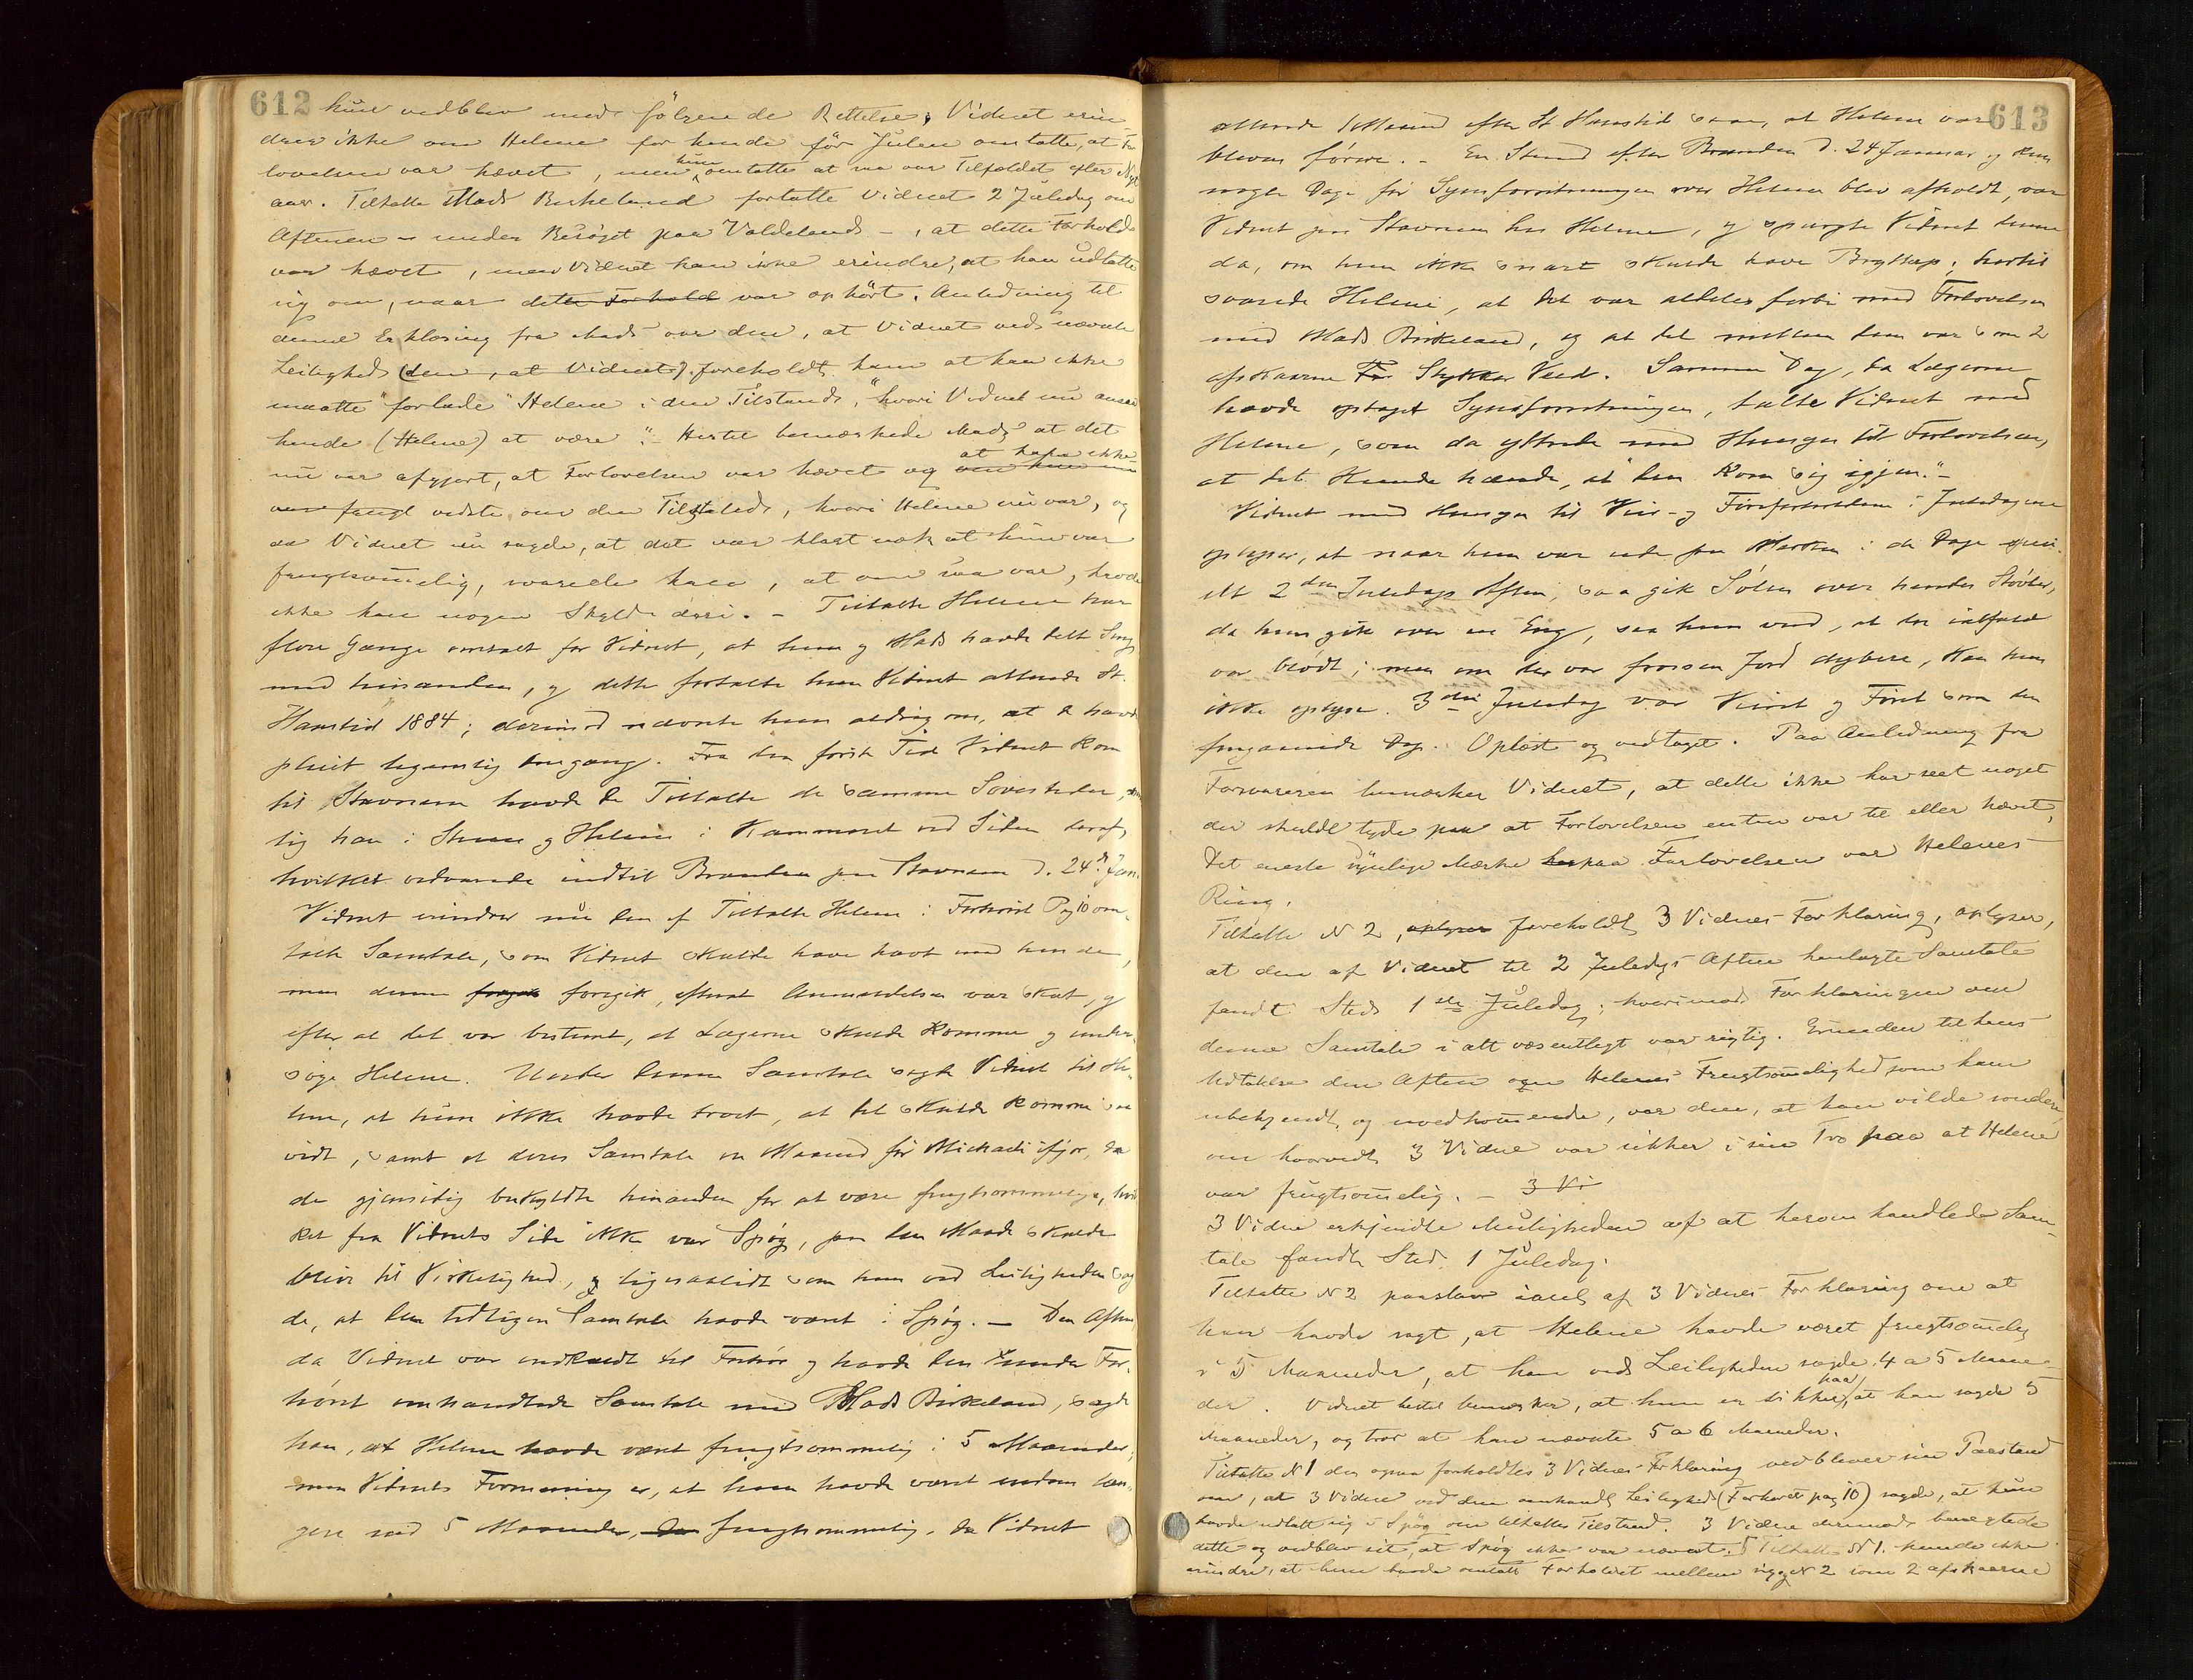 612
hun vedblev med følgende Rettelse; Vidnet erin-
drer ikke om Helene for hende før Julen omtalte, at For
lovelsen var hævet, men hun omtalte at saa var Tilfældet efter Nyt
aar. Tiltalte Mads Birkeland fortalte Vidnet 2 Juledag om
Aftenen – under Besøget paa Valdeland –, at dette Forhold
var hævet, men Vidnet kan ikke erindre, at han udtalte
sig om, naar dette Forhold var ophørt. Anledning til
denne Erklæring fra Mads var den, at Vidnet ved nævnte
Leilighed (den, at Vidnet) foreholdt ham at han ikke
maatte "forlade" Helene i den Tilstand, "hvori Vidnet nu ansaa
hende (Helene) at være". – Hertil bemærkede Mads at det
nu var afgjort, at Forlovelsen var hævet og at han ikke
vidste om den Tilstand, hvori Helene nu var, og
da Vidnet nu sagde, at det var klart nok at hun var
frugtsommelig, svarede han, at om saa var, havde
ikke han nogen Skyld deri. – Tiltalte Helene har
flere Gange omtalt for Vidnet, at hun og Mads havde delt Seng
med hinanden, og dette fortalte hun Vidnet allerede St.
Hanstid 1884; derimod nævnte hun aldrig om, at de havde
pleiet legemlig Omgang. Fra den første Tid Vidnet kom
til Stavnem havde de Tiltalte de samme Sovesteder, nem
lig han i Stuen og Helene i Kammeret ved Siden deraf,
hvilket vedvarede indtil Branden paa Stavnem d. 24de Jan.
Vidnet erindrer nu den af Tiltalte Helene i Forhøret Pag 10 om-
talte Samtale, som Vidnet skulde have havt med hende,
men denne foregik, efterat Anmeldelsen var skeet, og
efter at det var bestemt, at Lægerne skulde komme og under-
søge Helene. Under denne Samtale sagde Vidnet til He-
lene, at hun ikke havde troet, at det skulde komme saa
vidt, samt at deres Samtale en Maaned før Michaeli ifjor, da
de gjensidig beskyldte hinanden for at være frugtsommelige, hvil
ket fra Vidnets Side ikke var Spøg, paa den Maade skulde
blive til Virkelighed, og ligesaalidt som hun ved Leiligheden sag
de, at den tidligere Samtale havde været i Spøg. – Den Aften
da Vidnet var indkaldt til Forhør og havde den under For-
høret omhandlede Samtale med Mads Birkeland, sagde
han, at Helene havde været frugtsommelig i 5 Maaneder;
men Vidnets Formening er, at hun havde været endnu læn-
gere end 5 Maaneder, frugtsommelig, da Vidnet
613
allerede 1 Maaned efter St Hanstid saa, at Helene var
bleven førere. – En Stund efter Branden d. 24 Januar og kun
nogle Dage før Synsforretningen over Helene blev afholdt, var
Vidnet paa Stavnem hos Helene, og spurgte Vidnet denne
da, om hun ikke snart skulde have Bryllup; hertil
svarede Helene, at det var aldeles forbi med Forlovelsen
med Mads Birkeland, og at det mellem dem var som 2
afskaarne Stykker Veed. Samme Dag, da Lægerne
havde optaget Synsforretningen, talte Vidnet med
Helene, som da yttrede med Hensyn til Forlovelsen,
at det kunde hænde, at "den kom sig igjen". –
Vidnet med Hensyn til Veir- og Føreforholdene i Juledagene
oplyser, at naar hun var ude paa Marken i de Dage speci-
elt 2den Juledags Aften, saa gik Sølen over hendes Støvler,
da hun gik over en Eng, saa hun ved, at der ialfald
var blødt; men om der var frossen Jord dybere, kan hun
ikke oplyse. 3die Juledag var Veiret og Føret som den
foregaaende Dag. Oplæst og vedtaget. Paa Anledning fra
Forsvareren bemærker Vidnet, at dette ikke har seet noget
der skulde tyde paa at Forlovelsen enten var til eller hævet,
det eneste synlige Mærke paa Forlovelsen var Helenes
Ring.
Tiltalte N 2, foreholdt 3 Vidnes Forklaring, oplyser,
at den af Vidnet til 2 Juledags Aften henlagte Samtale
fandt Sted 1ste Juledag; hvorimod Forklaringen om
denne Samtale i alt væsentligt var rigtig. Grunden til hans
Udtalelse den Aften om Helenes Frugtsommelighed som ham
ubekjendt og uvedkommende, var den, at han vilde sondere
om hvorvidt 3 Vidne var sikker i sin Tro paa at Helene
var frugtsommelig. – 3 Vi
3 Vidne erkjendte Muligheden af at herom handlede Sam-
tale fandt Sted 1 Juledag.
Tiltalte N 2 paastaar ianl. af 3 Vidnes Forklaring om at
han havde sagt, at Helene havde været frugtsommelig
i 5 Maaneder, at han ved Leiligheden sagde 4 a 5 Maane-
der. Vidnet hertil bemærker, at hun er sikker paa, at han sagde 5
Maaneder, og tror at han nævnte 5 a 6 Maaneder.
Tiltalte N 1 der ogsaa forholdtes 3 Vidnes Forklaring vedblever sin Paastand
om, at 3 Vidne ved den omhandl. Leilighed (Forhøret pag 10) sagde, at hun
havde udtalt sig i Spøg om tiltaltes Tilstand. 3 Vidne derimod benegtede
dette og vedblev sit, at Spøg ikke var nævnt. Tiltalte N 1. kunde ikke
erindre, at hun havde omtalt Forholdet mellem sig og N 2 som 2 afskaarne